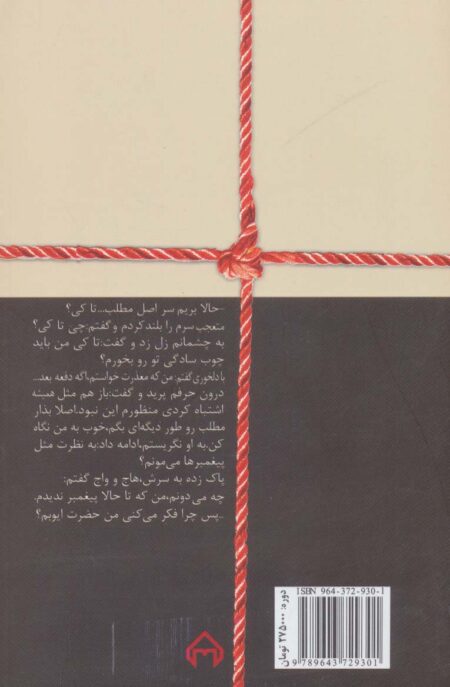 -حالا بریم سر اصل مطلب...تا کی؟
متعجب سرم را بلند کردم و گفتم:چی تا کی؟
به چشمانم زل زد و گفت:تا کی من باید
چوب سادگی تو رو بخورم؟
با دلخوری گفتم:من که معذرت خواستم،اگه دفعه بعد...
درون حرفم پرید و گفت:باز هم مثل همیشه
اشتباه کردی منظورم این نبود.اصلا بذار
مطلب رو طور دیگه‌ای بگم،خوب به من نگاه
کن.به او نگریستم،ادامه داد:به نظرت مثل
پیغمبرها می‌مونم؟
پاک زده به سرش،هاج و واج گفتم:
چه می‌دونم،من که تا حالا پیغمبر ندیدم.
-پس چرا فکر می‌کنی من حضرت ایوبم؟
دوره: ۲۷۵۰۰۰ تومان
ISBN 964-372-930-1
9 789643 729301